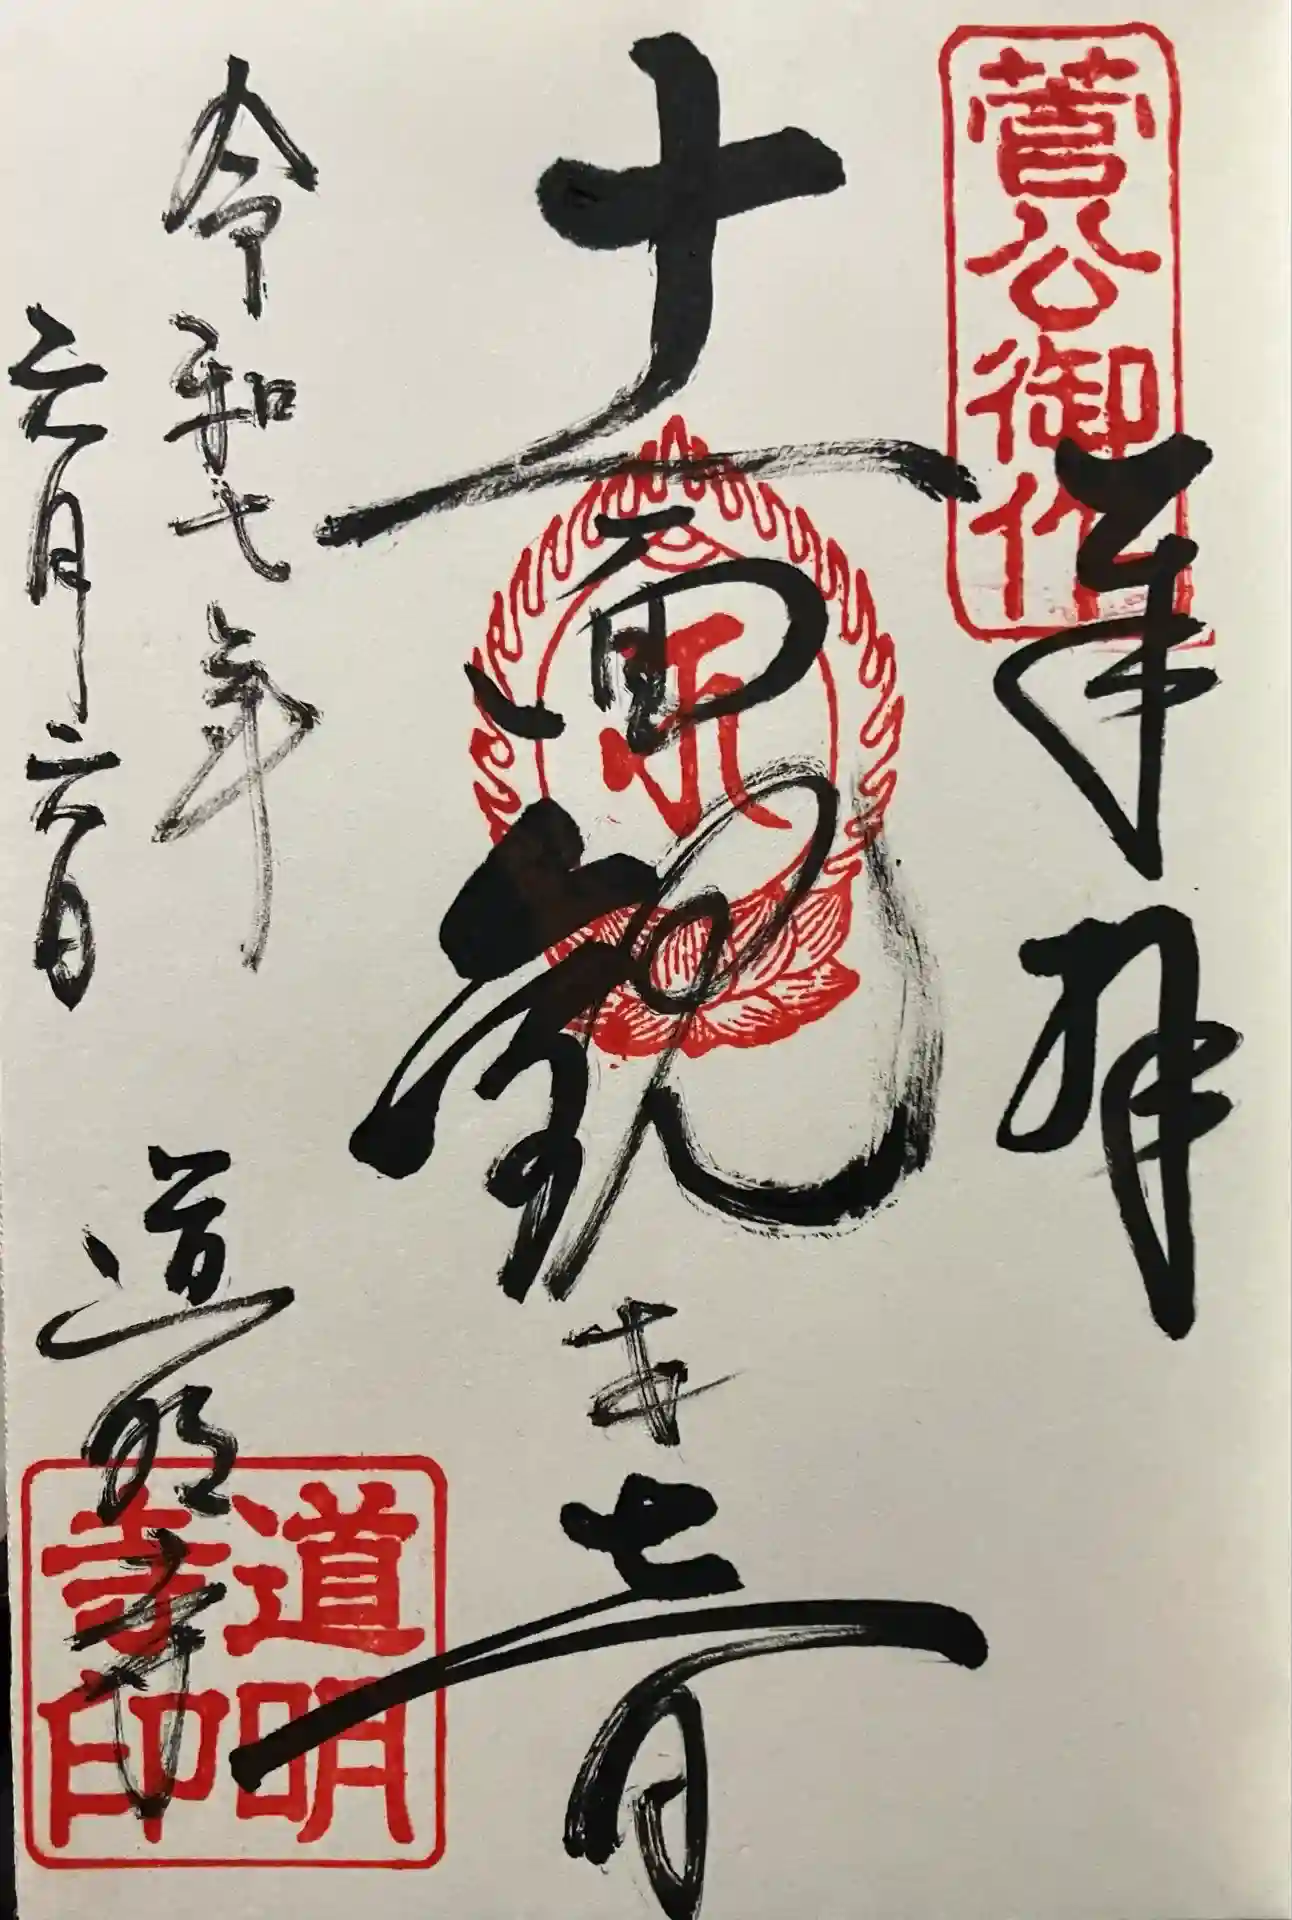 菅公御作
奉拝
十一面観世音
令和七年
六月六日
道明寺
道明寺印